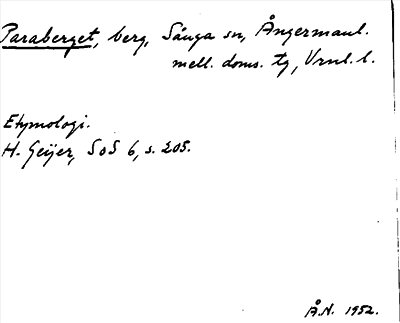 Paraberget, berg, Sånga sn, Ångermanl.
mell. doms. tg, Vrnl. l.
Etymologi.
H. Geijer, SoS 6, s. 205.
Å.N. 1952.